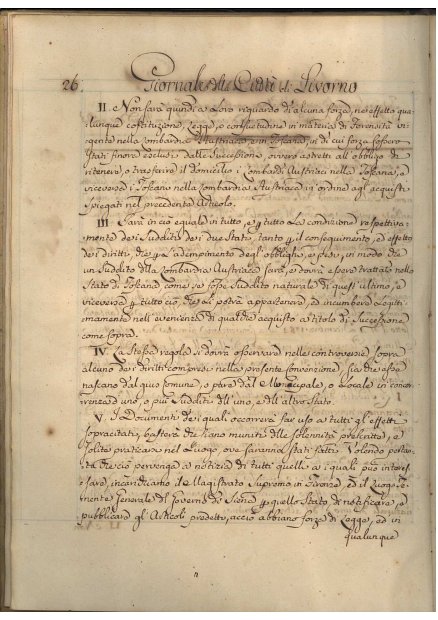 26. Giornale della Città di Livorno
II. Non sarà quindi a Loro riguardo di alcuna forza, ne effetto qua-
lunque costituzione, Legge, o consuetudine in materia di Forensità vi-
gente nella Lombardia Austriaca, e in Toscana, in di cui forza fossero
Stati finora esclusi dalle Successioni, ovvero astretti all'obbligo di
ritenere, o trasferire il domicilio i Lombardi Austriaci nella Toscana, e
viceversa i Toscani nella Lombardia Austriaca in ordine agl'acquisti
spiegati nel precedente Articolo.
III. Sarà in ciò eguale in tutto, e p tutto La condizione respettiva-
mente dei Sudditi dei due Stati, tanto p il conseguimento, ed effetto
dei diritti, che p L'adempimento degl'obblighi, e pesi, in modo che
un Suddito della Lombardia Austriaca sarà, e dovrà essere trattato nello
Stato di Toscana come se fosse Suddito naturale di quest'ultimo, e
viceversa p tutto ciò, che Li potrà appartenere, ed incumbere Legitti-
mamente nell'evenienza di qualche acquisto a titolo di Successione
come sopra.
IV. La stessa regola si dovrà osservare nelle controversie sopra
alcuno dei diritti compresi nella presente Convenzione, sia che essa
nascano dal gius Comune, o pure dal Municipale, o Locale in concor-
renza di uno, o più Sudditi dell'uno, e dell'altro Stato.
V. I Documenti dei quali occorrerà far uso a tutti gl'effetti
sopracitati, basterà che siano muniti delle solennità prescritte, o
solite praticarsi nel Luogo ove saranno stati fatti. Volendo pertan-
to che ciò pervenga a notizia di tutti quelli a i quali può interes-
sare, incarichiamo il Magistrato Supremo in Firenze, ed il Luogo Te-
nente Generale del Governo di Siena p quello Stato di notificare, e
pubblicare gl'Articoli predetti, acciò abbiano forza di Legge, ed in
qualunque